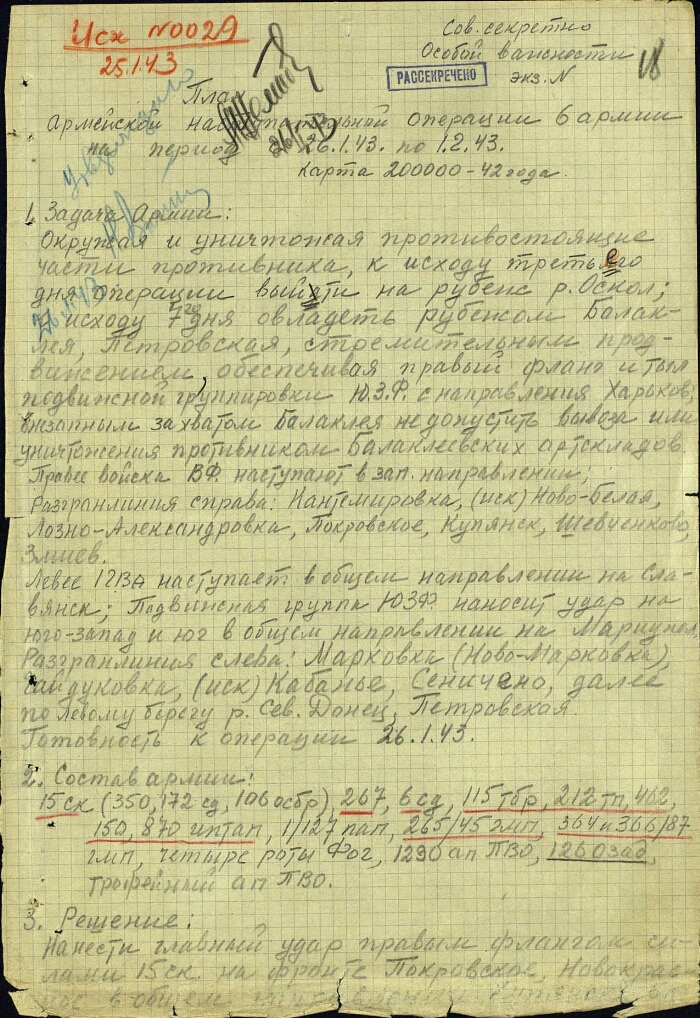 Исх №0029
25.1.43
Сов. секретно
Особой важности
РАССЕКРЕЧЕНО
экз. N
18
План
Армейской наступательной операции 6 армии
на период 26.1.43. по 1.2.43.
Карта 200000-42 года.
1. Задача Армии:
Окружая и уничтожая противостоящие
части противника, к исходу третьего
дня операции выйти на рубеж р. Оскол;
К исходу 7го дня овладеть рубежом Балак-
лея, Петровская, стремительным прод-
вижением, обеспечивая правый фланг и тыл
подвижной группировки Ю.З.Ф. с направления Харьков,
внезапным захватом Балаклея не допустить вывоза или
уничтожения противником Балаклеевских артскладов.
Правее войска ВФ. наступают в зап. направлении;
Разгранлиния справа: Кантемировка, (иск) Ново-Белая,
Лозно-Александровка, Покровское, Купянск, Шевченково,
Змиев.
Левее 1 ГвА наступает в общем направлении на Сла-
вянск; Подвижная группа ЮЗФ наносит удар на
юго-запад и юг в общем направлении на Мариуполь
Разгранлиния слева: Марковка (Ново-Марковка),
Гайдуковка, (иск) Кабанье, Сеничено, далее
по левому берегу р. Сев. Донец, Петровская
Готовность к операции 26.1.43.
2. Состав армии:
15 ск (350, 172 сд, 106 осбр), 267, 6 сд, 115 тбр, 212 тп, 462,
150, 870 иптап, 1/127 пап, 265/45 гмп, 364 и 366/87
гмп, четыре роты Фог, 1290 ап ПВО, 126 озад,
трофейный ап ПВО.
3. Решение:
Нанести главный удар правым флангом си-
лами 15 ск. на фронте Покровское, Новокрас-
ное в общем направлении